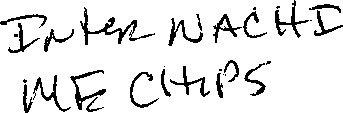 INTER NACHI
ME CHIPS